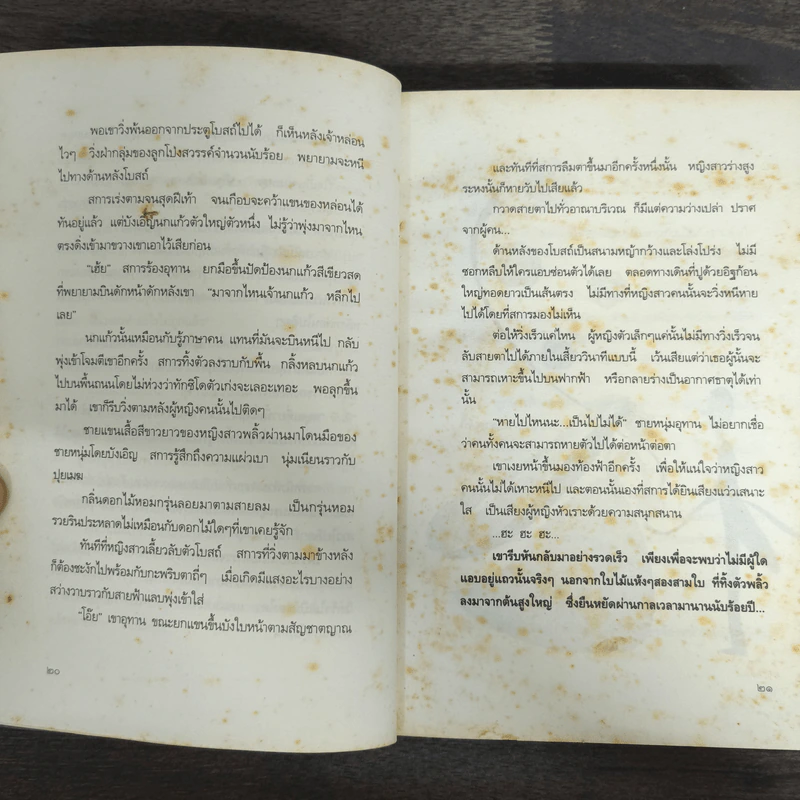 พอเขาวิ่งพ้นออกจากประตูโบสถ์ไปได้ ก็เห็นหลังเจ้าหล่อน
ไวๆ วิ่งฝ่ากลุ่มของลูกโป่งสวรรค์จำนวนนับร้อย พยายามจะหนี
ไปทางด้านหลังโบสถ์
สการเร่งตามจนสุดฝีเท้า จนเกือบจะคว้าแขนของหล่อนได้
ทันอยู่แล้ว แต่บังเอิญนกแก้วตัวใหญ่ตัวหนึ่ง ไม่รู้ว่าพุ่งมาจากไหน
ตรงดิ่งเข้ามาขวางเขาเอาไว้เสียก่อน
“เฮ้ย” สการร้องอุทาน ยกมือขึ้นปัดป้องนกแก้วสีเขียวสด
ที่พยายามบินดักหน้าดักหลังเขา “มาจากไหนเจ้านกแก้ว หลีกไป
เลย”
นกแก้วนั้นเหมือนกับรู้ภาษาคน แทนที่มันจะบินหนีไป กลับ
พุ่งเข้าโจมตีเขาอีกครั้ง สการทิ้งตัวลงราบกับพื้น กลิ้งหลบนกแก้ว
ไปบนพื้นถนนโดยไม่ห่วงว่าทักซิโดตัวเก่งจะเลอะเทอะ พอลุกขึ้น
มาได้ เขาก็รีบวิ่งตามหลังผู้หญิงคนนั้นไปติดๆ
ชายแขนเสื้อสีขาวยาวของหญิงสาวพลิ้วผ่านมาโดนมือของ
ชายหนุ่มโดยบังเอิญ สการรู้สึกถึงความแผ่วเบา นุ่มเนียนราวกับ
ปุยเมฆ
กลิ่นดอกไม้หอมกรุ่นลอยมาตามสายลม เป็นกรุ่นหอม
รวยรินประหลาดไม่เหมือนกับดอกไม้ใดๆที่เขาเคยรู้จัก
ทันทีที่หญิงสาวเลี้ยวลับตัวโบสถ์ สการที่วิ่งตามมาข้างหลัง
ก็ต้องชะงักไปพร้อมกับกะพริบตาถี่ๆ เมื่อเกิดมีแสงอะไรบางอย่าง
สว่างวาบราวกับสายฟ้าแลบพุ่งเข้าใส่
“โอ๊ย” เขาอุทาน ขณะยกแขนขึ้นบังใบหน้าตามสัญชาตญาณ
๒๐
และทันทีที่สการลืมตาขึ้นมาอีกครั้งหนึ่งนั้น หญิงสาวร่างสูง
ระหงนั้นก็หายวับไปเสียแล้ว
กวาดสายตาไปทั่วอาณาบริเวณ ก็มีแต่ความว่างเปล่า ปราศ
จากผู้คน...
ด้านหลังของโบสถ์เป็นสนามหญ้ากว้างและโล่งโปร่ง ไม่มี
ซอกหลืบให้ใครแอบซ่อนตัวได้เลย ตลอดทางเดินที่ปูด้วยอิฐก้อน
ใหญ่ทอดยาวเป็นเส้นตรง ไม่มีทางที่หญิงสาวคนนั้นจะวิ่งหนีหาย
ไปได้โดยที่สการมองไม่เห็น
ต่อให้วิ่งเร็วแค่ไหน ผู้หญิงตัวเล็กๆแค่นั้นไม่มีทางวิ่งเร็วจน
ลับสายตาไปได้ภายในเสี้ยววินาทีแบบนี้ เว้นเสียแต่ว่าเธอผู้นั้นจะ
สามารถเหาะขึ้นไปบนฟากฟ้า หรือกลายร่างเป็นอากาศธาตุได้เท่า
นั้น
“หายไปไหนนะ...เป็นไปไม่ได้” ชายหนุ่มอุทาน ไม่อยากเชื่อ
ว่าคนทั้งคนจะสามารถหายตัวไปได้ต่อหน้าต่อตา
เขาเงยหน้าขึ้นมองท้องฟ้าอีกครั้ง เพื่อให้แน่ใจว่าหญิงสาว
คนนั้นไม่ได้เหาะหนีไป และตอนนั้นเองที่สการได้ยินเสียงแว่วเสนาะ
ใส เป็นเสียงผู้หญิงหัวเราะด้วยความสนุกสนาน
...ฮะ ฮะ ฮะ...
เขารีบหันกลับมาอย่างรวดเร็ว เพียงเพื่อจะพบว่าไม่มีผู้ใด
แอบอยู่แถวนั้นจริงๆ นอกจากใบไม้แห้งๆสองสามใบ ที่ทิ้งตัวพลิ้ว
ลงมาจากต้นสูงใหญ่ ซึ่งยืนหยัดผ่านกาลเวลามานานนับร้อยปี...
๒๑